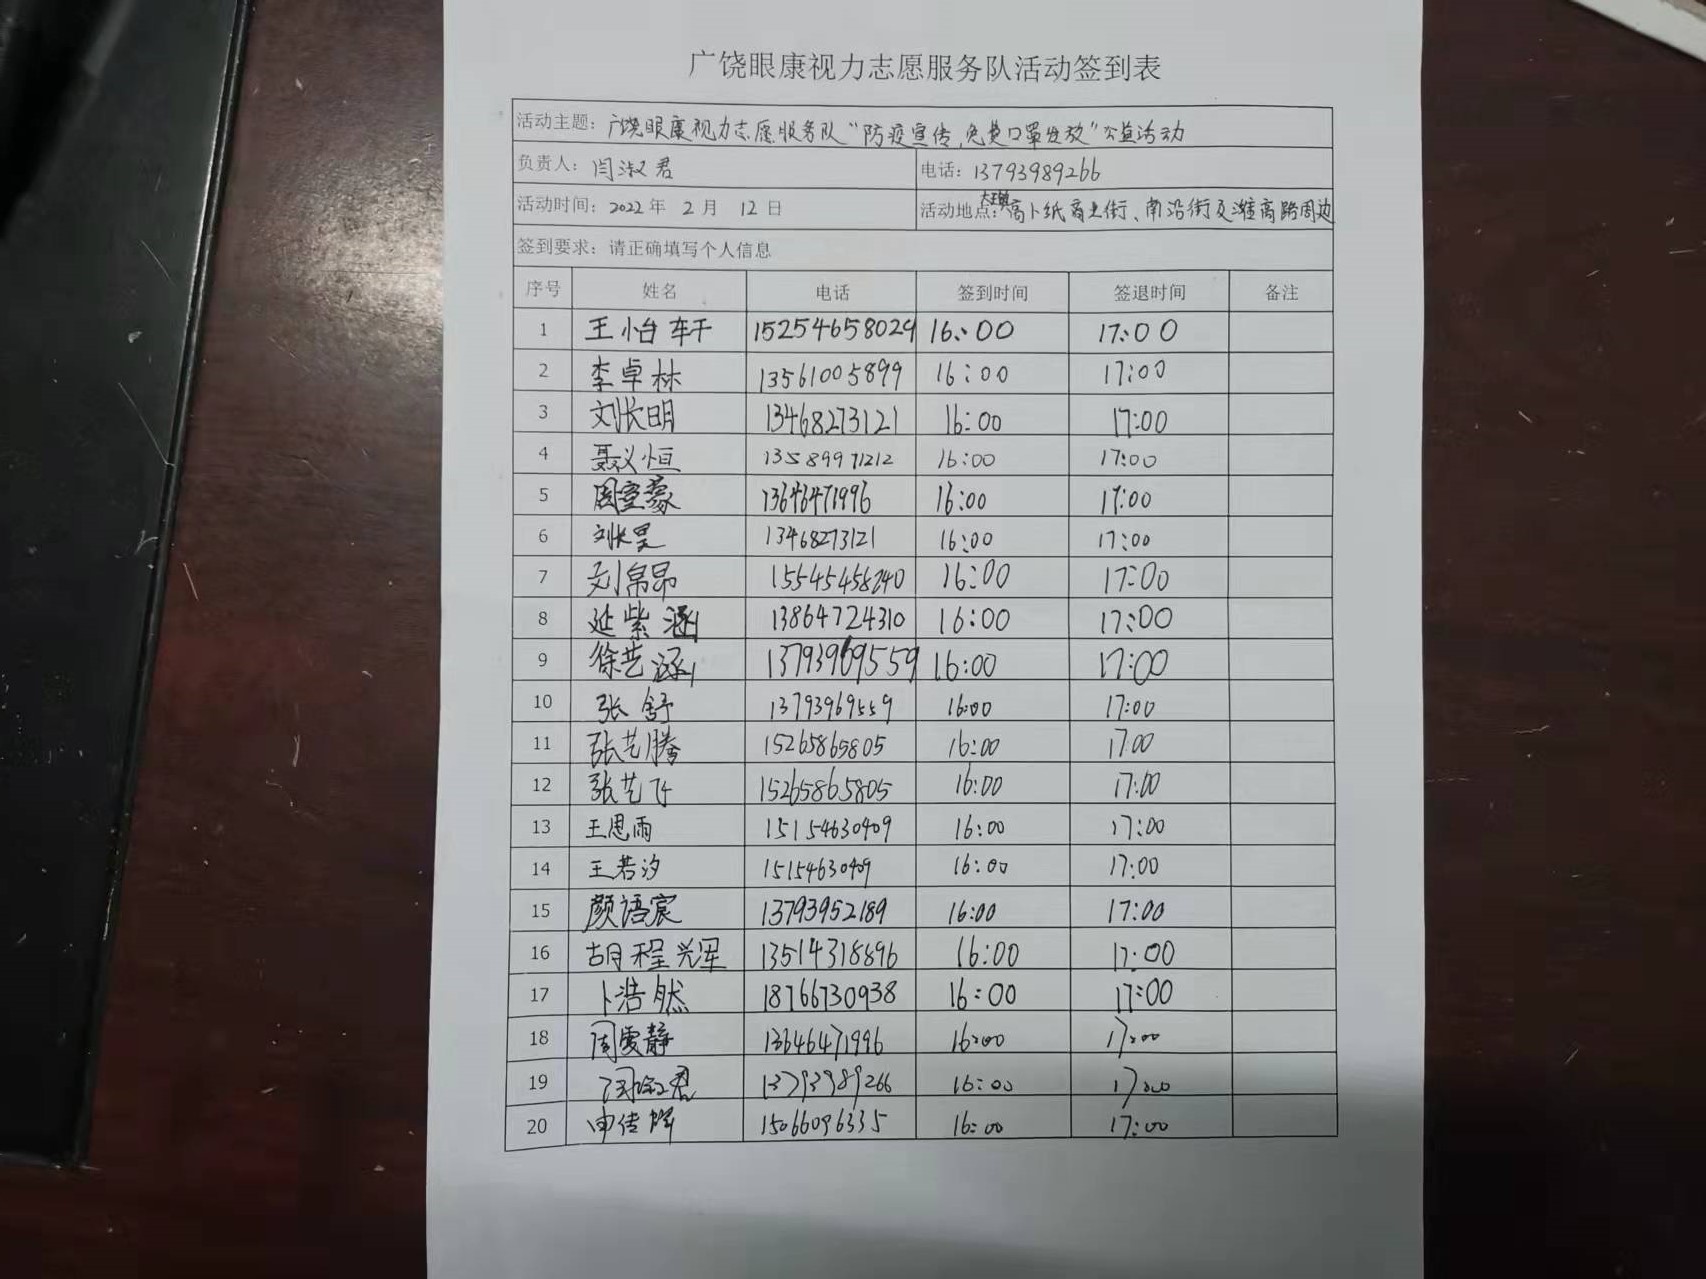 广饶眼康视力志愿服务队活动签到表
活动主题：广饶眼康视力志愿服务队“防疫宣传,免费口罩发放”公益活动
负责人：闫淑君 电话：13793989266
活动时间：2022年 2月 12日 活动地点：大王镇高卜纸商业街、南沿街及潍高路周边
签到要求：请正确填写个人信息
序号 姓名 电话 签到时间 签退时间 备注
1 王怡轩 15254658029 16:00 17:00
2 李卓林 13561005899 16:00 17:00
3 刘长明 13468273121 16:00 17:00
4 聂义恒 13589971212 16:00 17:00
5 13646471996 16:00 17:00
6 刘长昊 13468273121 16:00 17:00
7 刘帛昂 15545458240 16:00 17:00
8 延紫涵 13864724310 16:00 17:00
9 徐艺涵 13793969559 16:00 17:00
10 张舒 13793969559 16:00 17:00
11 张艺腾 15265865805 16:00 17:00
12 张艺飞 15265865805 16:00 17:00
13 王思雨 15154630409 16:00 17:00
14 王若汐 15154630409 16:00 17:00
15 颜语宸 13793952189 16:00 17:00
16 胡程辉 13514318696 16:00 17:00
17 卜浩然 18766730938 16:00 17:00
18 周雯静 13646471996 16:00 17:00
19 闫淑君 13793989266 16:00 17:00
20 申传辉 15066096335 16:00 17:00